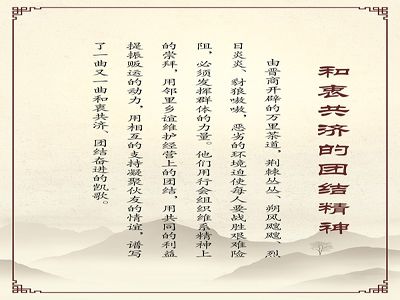 和衷共济的团结精神
由晋商开辟的万里茶道，荆棘丛丛、朔风飕飕、烈
日炎炎、豺狼嗷嗷，恶劣的环境迫使每人要战胜艰难险
阻，必须发挥群体的力量。他们用行会组织维系精神上
的崇拜，用邻里乡谊维护经营上的团结，用共同的利益
提振贩运的动力，用相互的支持凝聚伙友的情谊，谱写
了一曲又一曲和衷共济、团结奋进的凯歌。